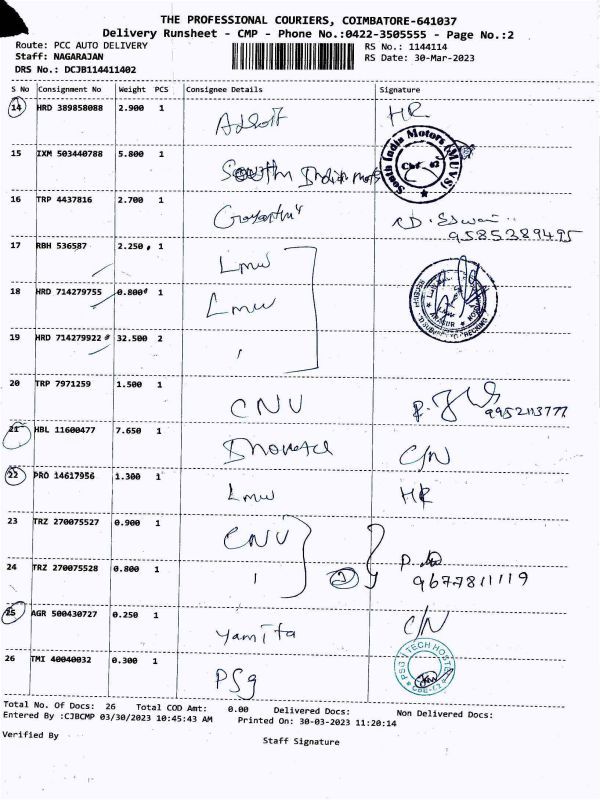 THE PROFESSIONAL COURIERS, COIMBATORE-641037
Delivery Runsheet - CMP - Phone No.:0422-3505555 - Page No.:2
Route: PCC AUTO DELIVERY RS No.: 1144114
Staff: NAGARAJAN RS Date: 30-Mar-2023
DRS No.: DCJB114411402
S No Consignment No Weight PCS Consignee Details Signature
14 HRD 389858088 2.900 1 HR
15 IXM 503440788 5.800 1 South India South India Motors (MUVS)
16 TRP 4437816 2.700 1
9585389495
17 RBH 536587 2.250 1 Lmw
18 HRD 714279755 0.800 1 Lmw
19 HRD 714279922 32.500 2 "
20 TRP 7971259 1.500 1 CNU 9952113777
21 HBL 11600477 7.650 1 C/N
22 PRO 14617956 1.300 1 Lmw HR
23 TRZ 270075527 0.900 1 CNU
24 TRZ 270075528 0.800 1 " 2 9677811119
25 AGR 500430727 0.250 1 Yamita C/N
26 TMI 40040032 0.300 1 PSg PSG iTECH HOSTEL
Total No. Of Docs: 26 Total COD Amt: 0.00 Delivered Docs: Non Delivered Docs:
Entered By :CJBCMP 03/30/2023 10:45:43 AM Printed On: 30-03-2023 11:20:14
Verified By Staff Signature